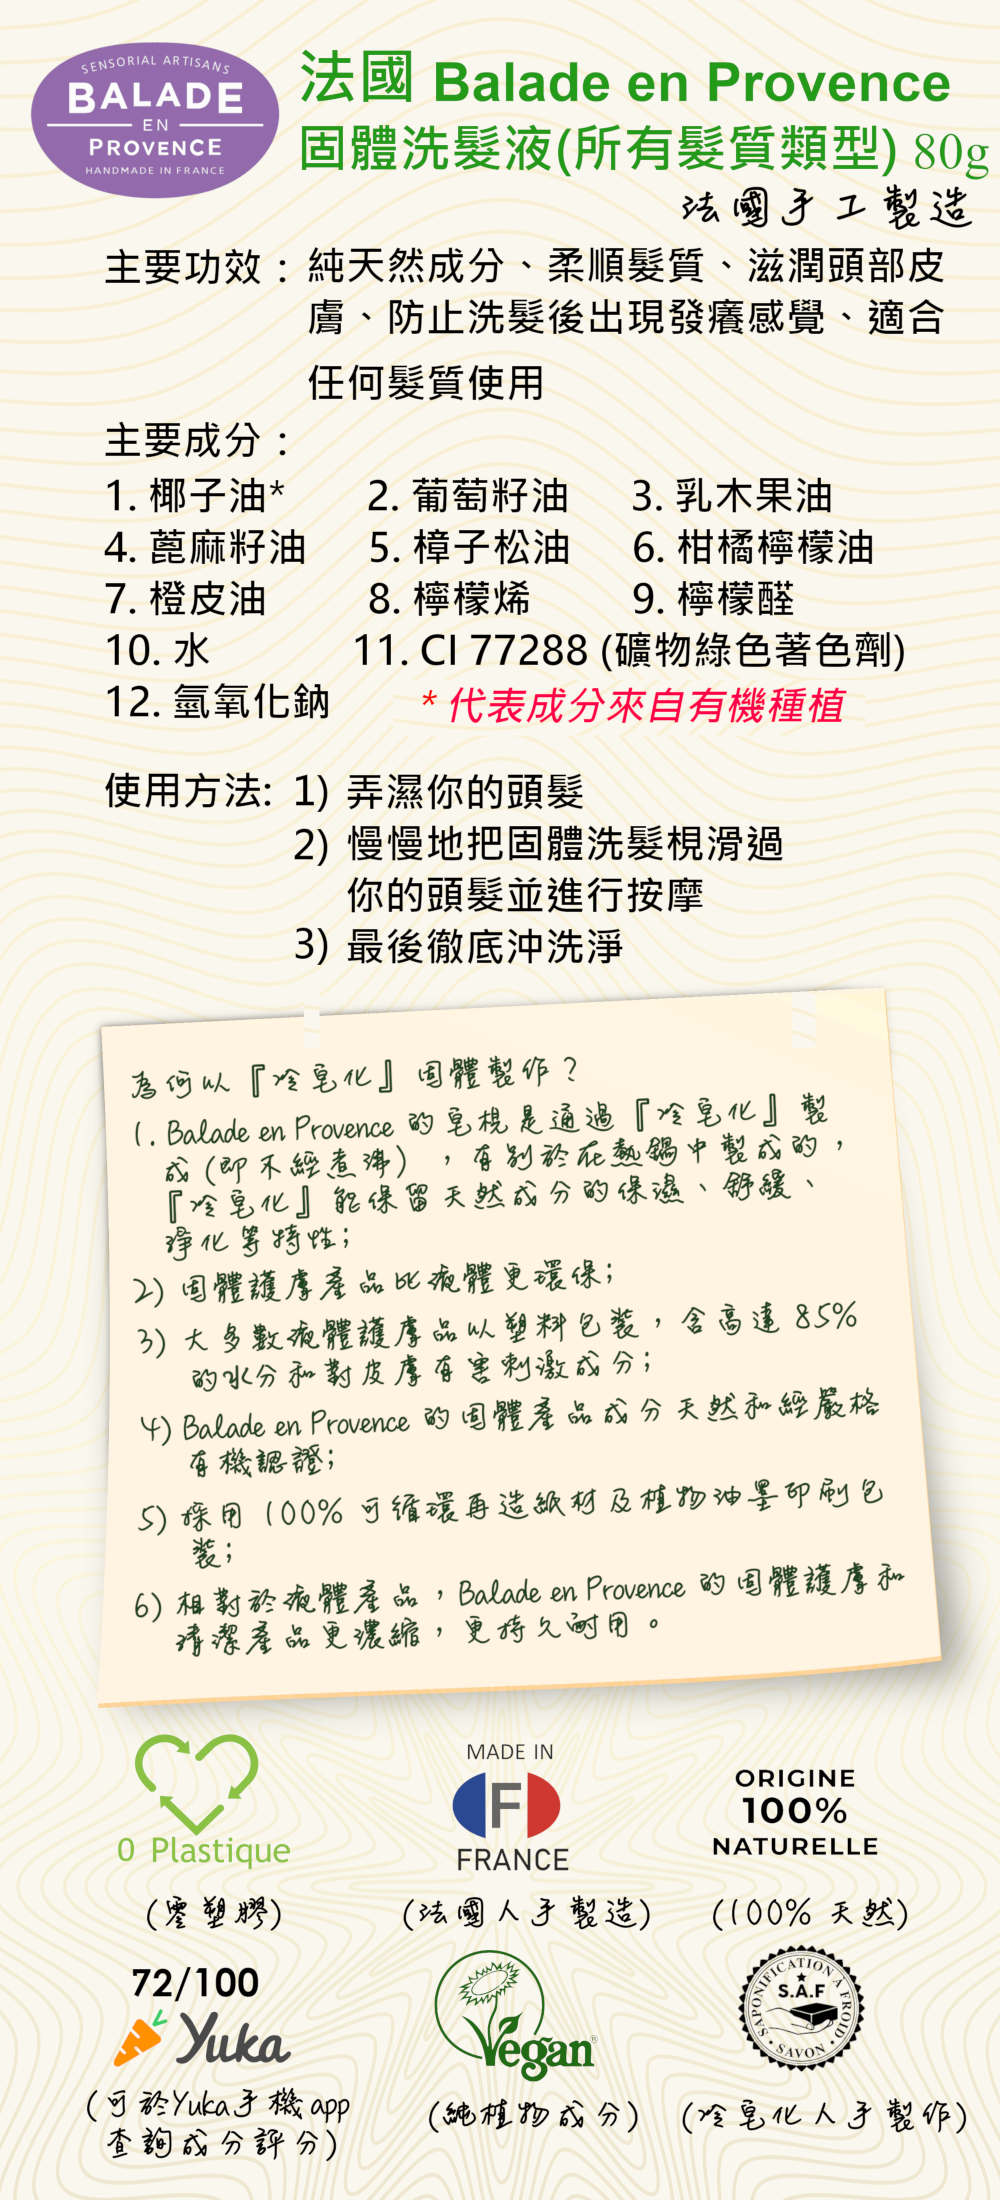 SENSORIAL ARTISANS
BALADE
EN
PROVENCE
HANDMADE IN FRANCE
法國 Balade en Provence
固體洗髮液(所有髮質類型) 80g
法國手工製造
主要功效：純天然成分、柔順髮質、滋潤頭部皮
膚、防止洗髮後出現發癢感覺、適合
任何髮質使用
主要成分：
1. 椰子油* 2. 葡萄籽油 3. 乳木果油
4. 蓖麻籽油 5. 樟子松油 6. 柑橘檸檬油
7. 橙皮油 8. 檸檬烯 9. 檸檬醛
10. 水 11. CI 77288 (礦物綠色著色劑)
12. 氫氧化鈉 * 代表成分來自有機種植
使用方法: 1) 弄濕你的頭髮
2) 慢慢地把固體洗髮梘滑過
你的頭髮並進行按摩
3) 最後徹底沖洗淨
為何以『冷皂化』固體製作？
1. Balade en Provence 的皂梘是通過『冷皂化』製
成(即不經煮沸)，有別於在熱鍋中製成的，
『冷皂化』能保留天然成分的保濕、舒緩、
淨化等特性;
2) 固體護膚產品比液體更環保;
3) 大多數液體護膚品以塑料包裝，含高達85%
的水分和對皮膚有害刺激成分;
4) Balade en Provence 的固體產品成分天然和經嚴格
有機認證;
5) 採用 100% 可循環再造紙材及植物油墨印刷包
裝;
6) 相對於液體產品，Balade en Provence 的固體護膚和
清潔產品更濃縮，更持久耐用。
0 Plastique
(零塑膠)
MADE IN
F
FRANCE
(法國人手製造)
ORIGINE
100%
NATURELLE
(100% 天然)
72/100
Yuka
(可於Yuka手機app
查詢成分評分)
Vegan®
(純植物成分)
SAPONIFICATION À FROID
S.A.F
SAVON
(冷皂化人手製作)